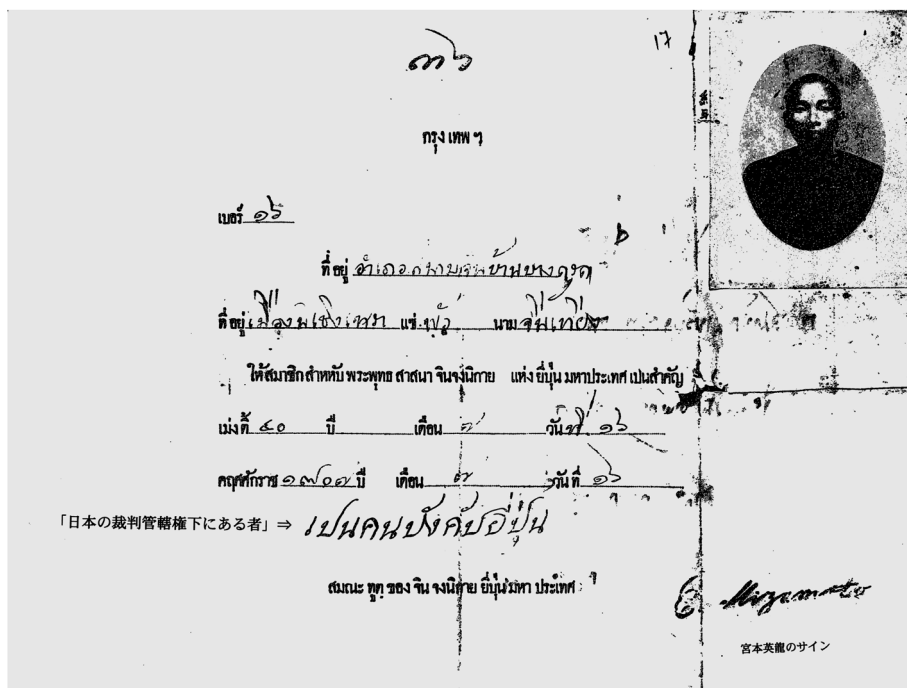 ๓๖
17
กรุงเทพ ฯ
เบอร์ ๑๖
ที่อยู่
ที่อยู่ แซ่ นาม
ให้สมาชิกสำหรับ พระพุทธ สาสนา จินจงนิกาย แห่ง ยี่ปุ่น มหาประเทศ เปนสำคัญ
เม่งติ้ ๔๐ ปี เดือน ๗ วันที่ ๑๖
คฤศศักราช ๑๙๐๗ ปี เดือน ๗ วันที่ ๑๖
「日本の裁判管轄権下にある者」⇒ เปนคนบังคับยี่ปุ่น
สมณะ ทูต ของ จิน จงนิกาย ยี่ปุ่น มหา ประเทศ
E Miyamoto
宮本英龍のサイン